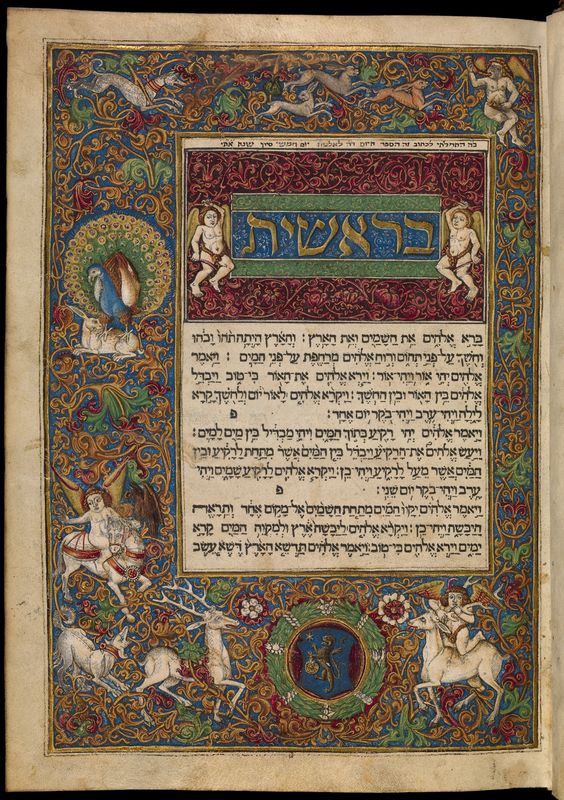 התחלתי לכתוב זה הספר היום יום חמשי סיון שנת
בראשית
ברא אלהים את השמים ואת הארץ: והארץ היתה תהו ובהו
וחשך על פני תהום ורוח אלהים מרחפת על פני המים: ויאמר
אלהים יהי אור ויהי אור: וירא אלהים את האור כי־טוב ויבדל
אלהים בין האור ובין החשך: ויקרא אלהים לאור יום ולחשך קרא
לילה ויהי ערב ויהי בקר יום אחד: פ
ויאמר אלהים יהי רקיע בתוך המים ויהי מבדיל בין מים למים:
ויעש אלהים את הרקיע ויבדל בין המים אשר מתחת לרקיע ובין
המים אשר מעל לרקיע ויהי כן: ויקרא אלהים לרקיע שמים ויהי
ערב ויהי בקר יום שני: פ
ויאמר אלהים יקוו המים מתחת השמים אל מקום אחד ותראה
היבשה ויהי כן: ויקרא אלהים ליבשה ארץ ולמקוה המים קרא
ימים וירא אלהים כי־טוב: ויאמר אלהים תדשא הארץ דשא עשב